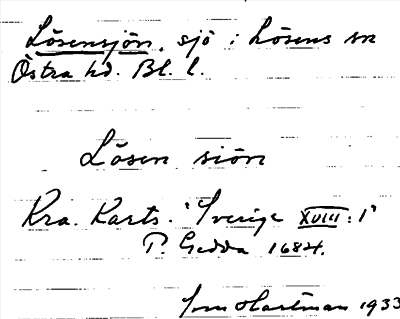 Lösensjön, sjö i Lösens sn
Östra hd. Bl. l.
Lösen siön
Kra. Karts. "Sverige XVIII:1"
P. Gedda 1684.
Hartman 1933